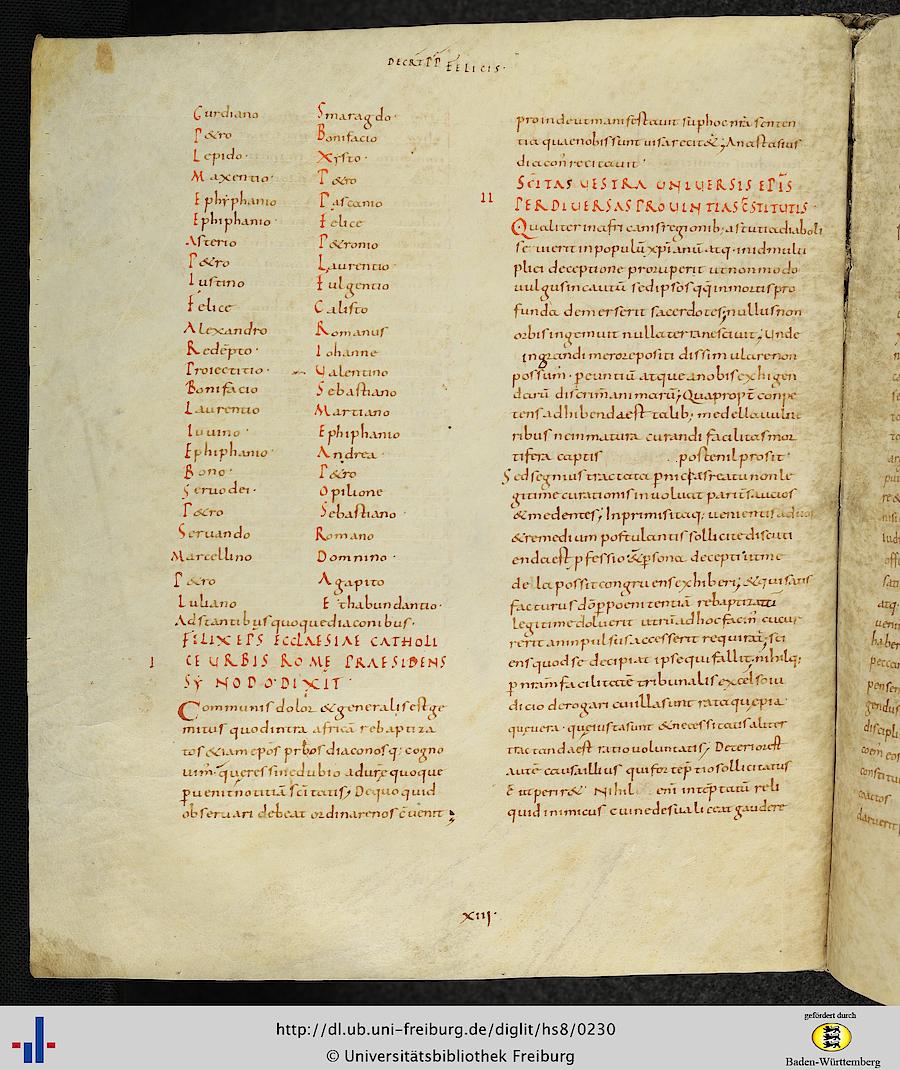 DECRT PP FELICIS·
Gurdiano
Petro
Lepido·
Maxentio·
Ephyphanio
Ephiphanio·
Asterio
Petro
Iustino
Felice
Alexandro
Redēpto·
Proiectitio·
Bonifacio
Laurentio
Iuuino·
Ephiphanio·
Bono·
Seruodei·
Petro
Seruando
Marcellino
Petro
Iuliano
Smaragdo·
Bonifacio
Xysto·
Petro
Pascasio
Felice
Petronio
Laurentio
Fulgentio
Calisto
Romanus
Iohanne
Valentino
Sebastiano
Martiano
Ephiphanio
Andrea·
Petro
Opilione
Sebastiano·
Romano
Domnino·
Agapito
Ethabundantio·
Adstantibus quoque diaconibus·
FILIX EPS ECCLAESIAE CATHOLI
I CE URBIS ROME PRAESIDENS
SYNODO· DIXIT
Communis dolor & generalis est ge
mitus quod intra africā rebaptiza
tos & iam epōs prbōs diaconosq; cogno
uim· que res sine dubio ad urē quoque
puenit notitiā scitatis; De quo quid
obseruari debeat ordinare nos cuenit;
proinde ut manifestauit suphoc nra senten
tia quae nobis sunt uisa recitet; Anastasius
diacon recitauit·
SCITAS UESTRA UNIUERSIS EPIS
II PER DIUERSAS PROUINTIAS CSTITUTIS·
Qualiter in africanis regionib; astutia diaboli
seuierit in populū xpianū atq· in id multi
plici deceptione proruperit ut non modo
uulgus incautū sed ipsos qq in mortis pro
funda demerserit sacerdotes; nullus non
orbis ingemuit nulla terra nesciuit; Unde
in grandi merore positi dissimulare non
possum· pereuntiū atque a nobis exhigen
darū discrimē animarū; Quapropt conpe
tens adhibenda est talib; medella uulne
ribus ne inmatura curandi facilitas mor
tifera captis postē nil prosit·
Sed segnius tractata pnicies reatu non le
gitime curationis inuoluat pariū saucios
& medentes; Inprimis itaq; uenientis ad uos
& remedium postulantis sollicite discuti
enda est pfessio & psona decepti ut me
della possit congruens exhiberi; & qui satis
facturus dō p poenitentiā rebaptizatū
legitime doluerit utrū ad hoc facin cucur
rerit an inpulsus accesserit requirat; sci
ens quod se decipiat ipse qui fallit· nihilq;
p nram facilitatē tribunalis excelsi iu
dicio derogari cui illa sunt rata que pia
que uera· que iusta sunt & necessitatis aliter
tractanda est ratio uoluntatis; Deterior est
autē causa illius qui fortē p tio sollicitatus
ē ut periret· Nihil enī intēptatū reli
quid inimicus cui nede suali ceat gaudere
XIII·
http://dl.ub.uni-freiburg.de/diglit/hs8/0230
© Universitätsbibliothek Freiburg
gefördert durch
Baden-Württemberg